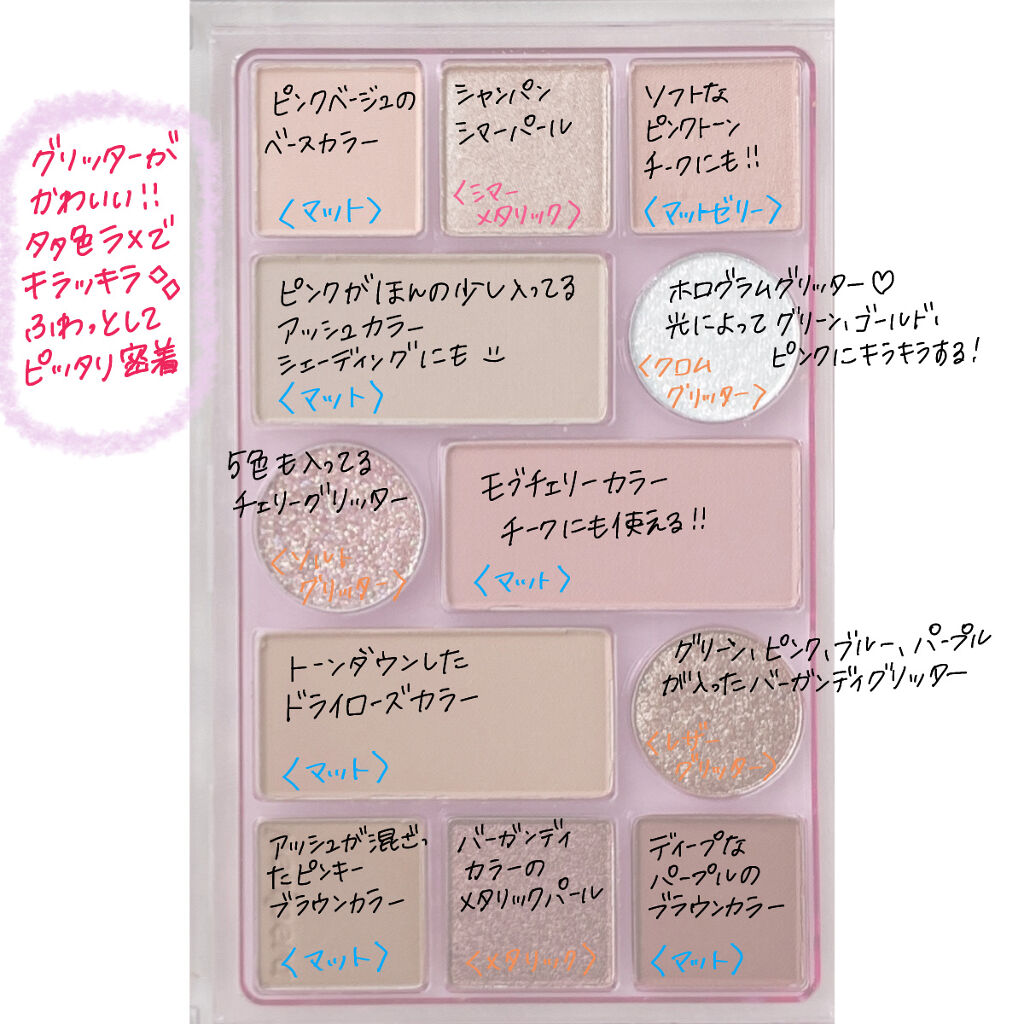 グリッターが
かわいい!!
多色ラメで
キラッキラ
ふわっとして
ピッタリ密着
ピンクベージュの
ベースカラー
〈マット〉
シャンパン
シマーパール
〈シマー
メタリック〉
ソフトな
ピンクトーン
チークにも!!
〈マットゼリー〉
ピンクがほんの少し入ってる
アッシュカラー
シェーディングにも
〈マット〉
ホログラムグリッター♡
光によってグリーン、ゴールド、
ピンクにキラキラする!
〈クロム
グリッター〉
5色も入ってる
チェリーグリッター
〈ソルト
グリッター〉
モヴチェリーカラー
チークにも使える!!
〈マット〉
トーンダウンした
ドライローズカラー
〈マット〉
グリーン、ピンク、ブルー、パープル
が入ったバーガンディグリッター
〈レザー
グリッター〉
アッシュが混ざっ
たピンキー
ブラウンカラー
〈マット〉
バーガンディ
カラーの
メタリックパール
〈メタリック〉
ディープな
パープルの
ブラウンカラー
〈マット〉